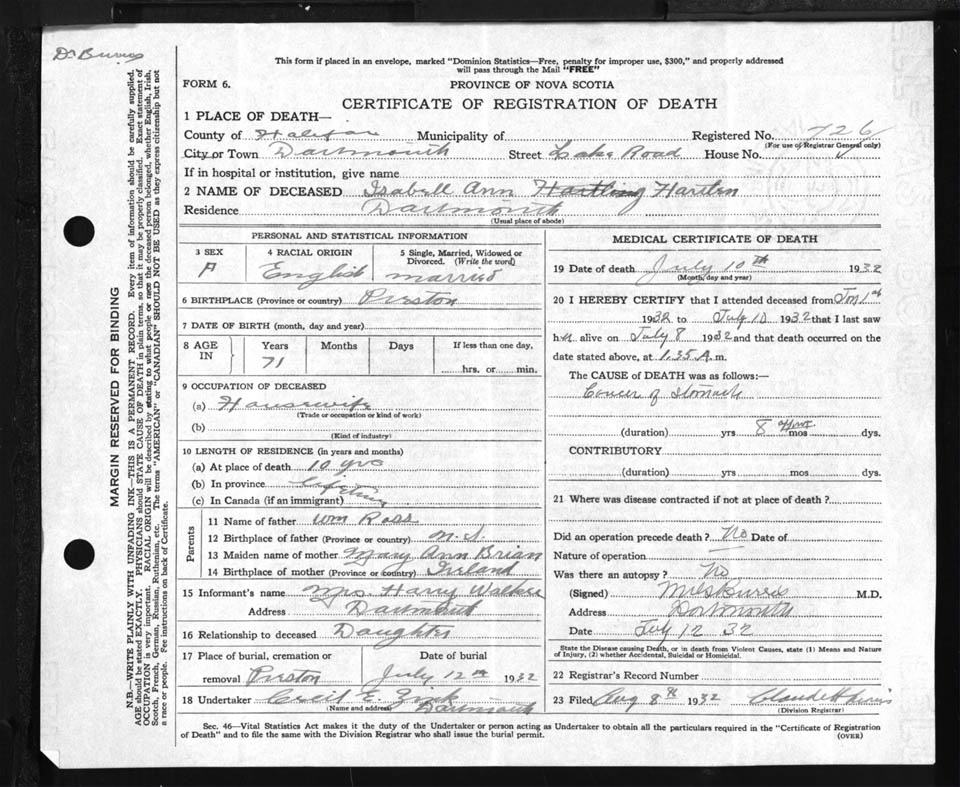 Dr Burris
This form if placed in an envelope, marked "Dominion Statistics—Free, penalty for improper use, $300," and properly addressed
will pass through the Mail "FREE"
FORM 6.
PROVINCE OF NOVA SCOTIA
CERTIFICATE OF REGISTRATION OF DEATH
1 PLACE OF DEATH—
County of Halifax Municipality of Registered No. 726
(For use of Registrar General only)
City or Town Dartmouth Street Lake Road House No.
If in hospital or institution, give name
2 NAME OF DECEASED Isabell Ann Hartling Harrlen
Residence Dartmouth
(Usual place of abode)
PERSONAL AND STATISTICAL INFORMATION
3 SEX
F
4 RACIAL ORIGIN
English
5 Single, Married, Widowed or
Divorced. (Write the word)
married
6 BIRTHPLACE (Province or country) Preston
7 DATE OF BIRTH (month, day and year)
8 AGE
IN
Years
71
Months
Days
If less than one day,
hrs. or min.
9 OCCUPATION OF DECEASED
(a) Housewife
(Trade or occupation or kind of work)
(b)
(Kind of industry)
10 LENGTH OF RESIDENCE (in years and months)
(a) At place of death 10 yrs
(b) In province Lifetime
(c) In Canada (if an immigrant)
Parents
11 Name of father Wm Ross
12 Birthplace of father (Province or country) N.S.
13 Maiden name of mother Mary Ann Brian
14 Birthplace of mother (Province or country) Ireland
15 Informant's name Mrs. Harry Walker
Address Dartmouth
16 Relationship to deceased Daughter
17 Place of burial, cremation or
removal Preston
Date of burial
July 12th 1932
18 Undertaker Cecil E. Zink
(Name and address) Dartmouth
MEDICAL CERTIFICATE OF DEATH
19 Date of death July 10th 1932
(Month, day and year)
20 I HEREBY CERTIFY that I attended deceased from 1st
1932 to July 10 1932 that I last saw
her alive on July 8 1932 and that death occurred on the
date stated above, at 1.35 A.m.
The CAUSE of DEATH was as follows:—
Cancer of Stomach
(duration) yrs 8 mos dys.
CONTRIBUTORY
(duration) yrs. mos. dys.
21 Where was disease contracted if not at place of death?
Did an operation precede death? No Date of
Nature of operation
Was there an autopsy? No
(Signed) M.D.
Address Dartmouth
Date July 12 32
State the Disease causing Death, or in death from Violent Causes, state (1) Means and Nature
of Injury, (2) whether Accidental, Suicidal or Homicidal.
22 Registrar's Record Number
23 Filed Aug 8th 1932
(Division Registrar)
Sec. 46—Vital Statistics Act makes it the duty of the Undertaker or Person acting as Undertaker to obtain all the particulars required in the "Certificate of Registration
of Death" and to file the same with the Division Registrar who shall issue the burial permit.
(OVER)
MARGIN RESERVED FOR BINDING
N.B.—WRITE PLAINLY WITH UNFADING INK—THIS IS A PERMANENT RECORD. Every item of information should be carefully supplied.
AGE should be stated EXACTLY. PHYSICIANS should STATE CAUSE OF DEATH in plain terms, so that it may be properly classified. Exact statement of
OCCUPATION is very important. RACIAL ORIGIN will be described by stating to what people or race the deceased person belonged, whether English, Irish,
Scotch, French, German, Russian, Ruthenian, etc. The terms "AMERICAN" or "CANADIAN" SHOULD NOT BE USED as they express citizenship but not
a race or people. Fee instructions on back of Certificate.